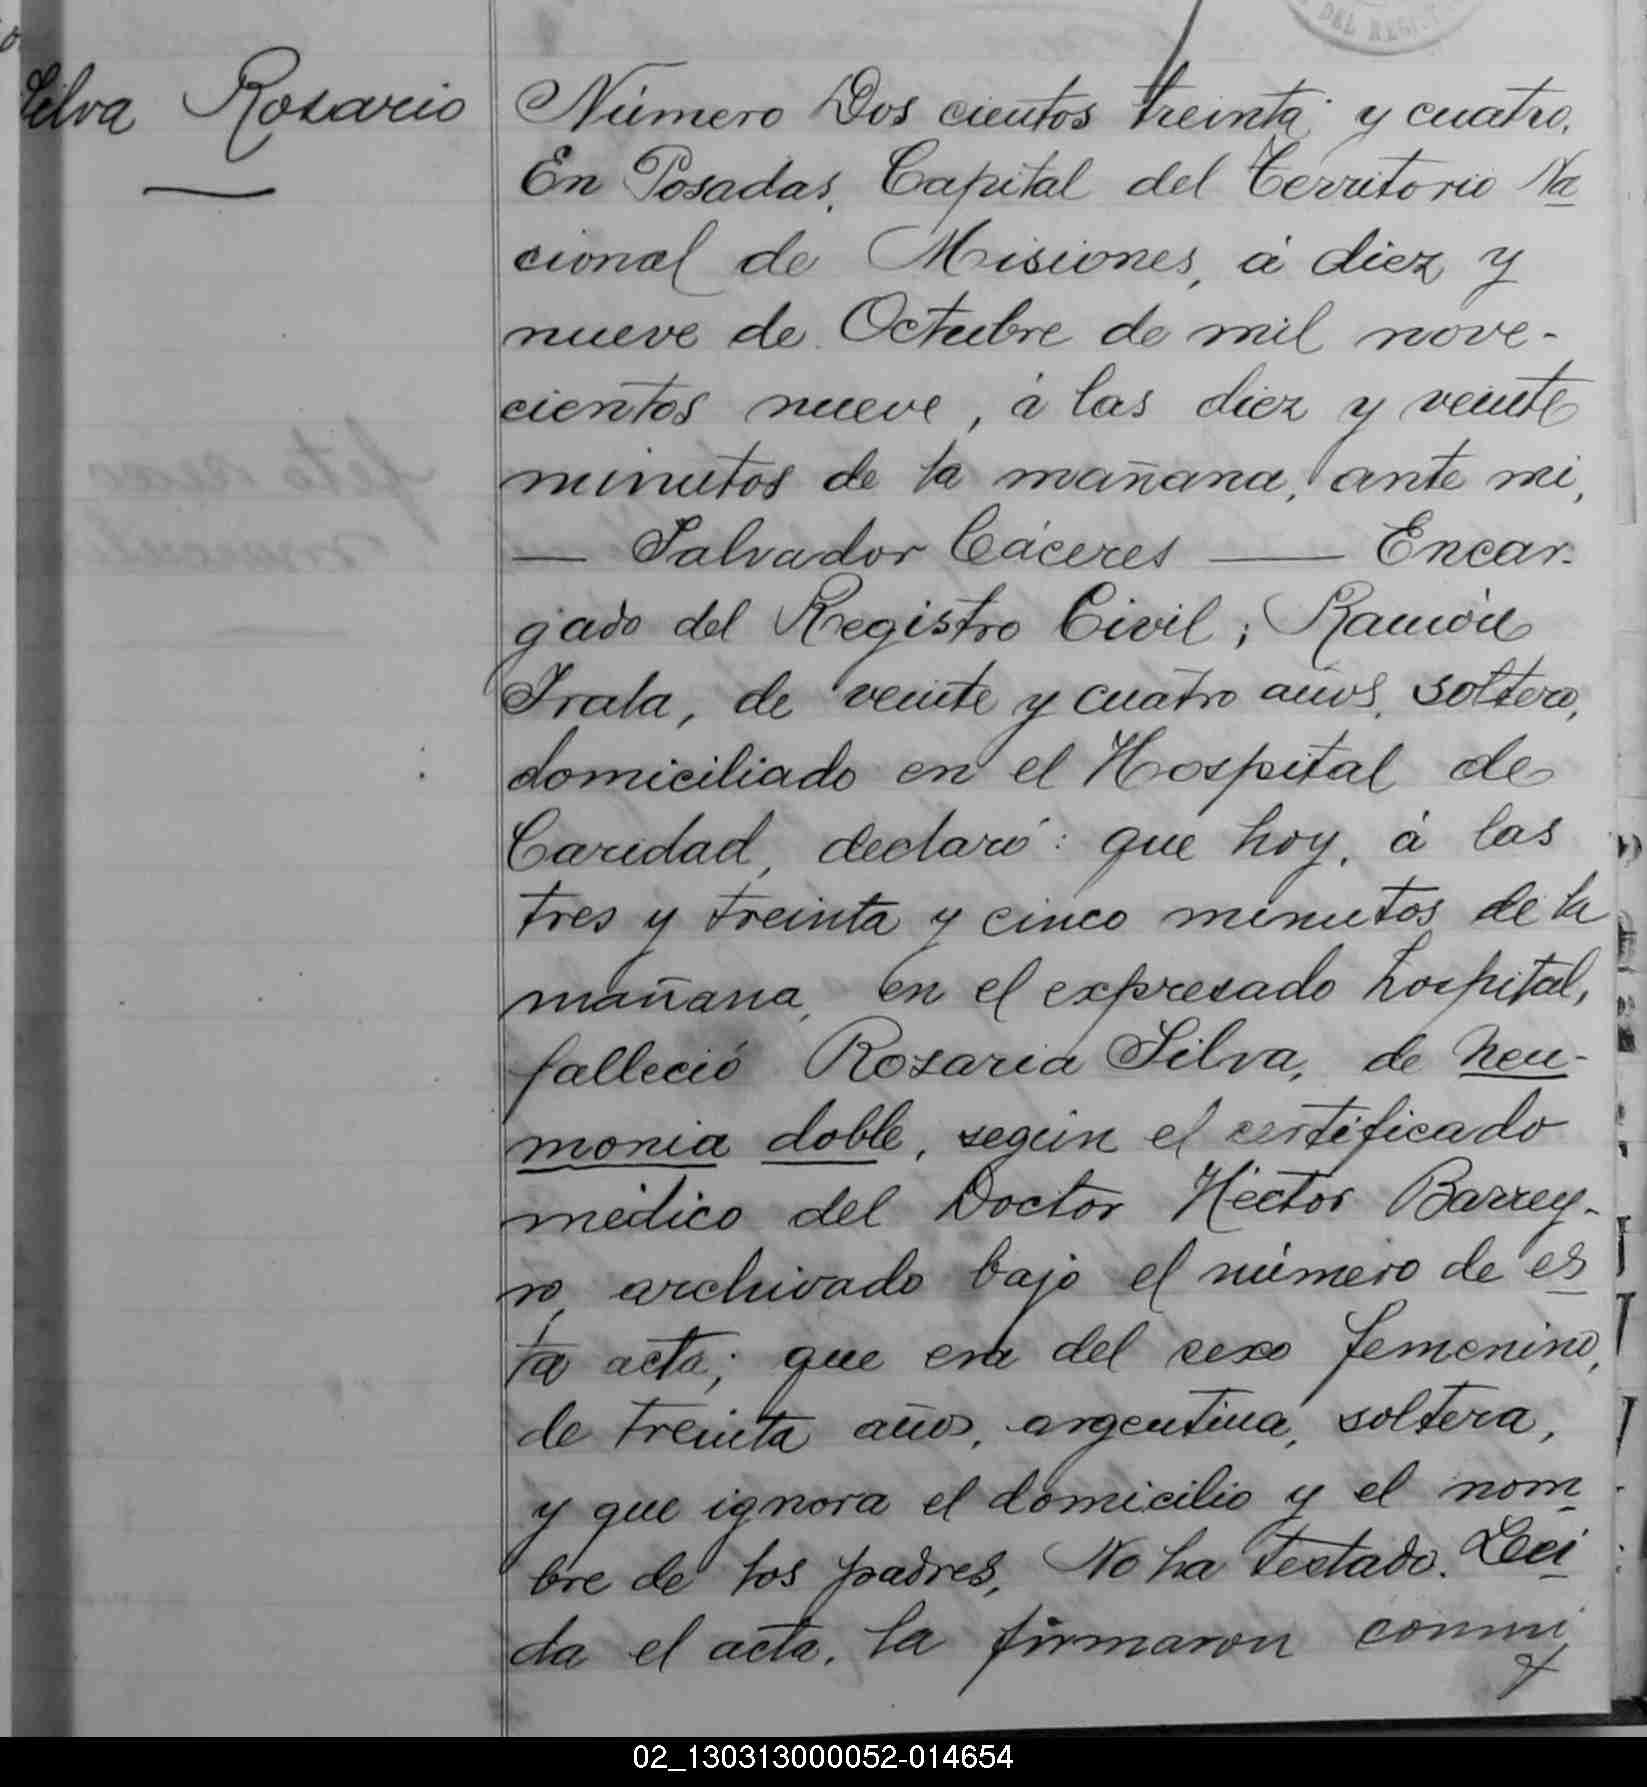 Silva Rosario
Número Dos cientos treinta y cuatro.
En Posadas, Capital del Territorio Na
cional de Misiones, á diez y
nueve de Octubre de mil nove-
cientos nueve, á las diez y veinte
minutos de la mañana, ante mi,
— Salvador Cáceres — Encar-
gado del Registro Civil; Ramón
Irala, de veinte y cuatro años, soltero,
domiciliado en el Hospital de
Caridad, declaró: que hoy, á las
tres y treinta y cinco minutos de la
mañana, en el expresado hospital,
falleció Rosaria Silva, de neu-
monia doble, según el certificado
médico del Doctor Héctor Barrey-
ro, archivado bajo el número de es
ta acta; que era del sexo femenino,
de treinta años, argentina, soltera,
y que ignora el domicilio y el nom
bre de los padres. No ha testado. Lei
da el acta, la firmaron conmi
02_130313000052-014654